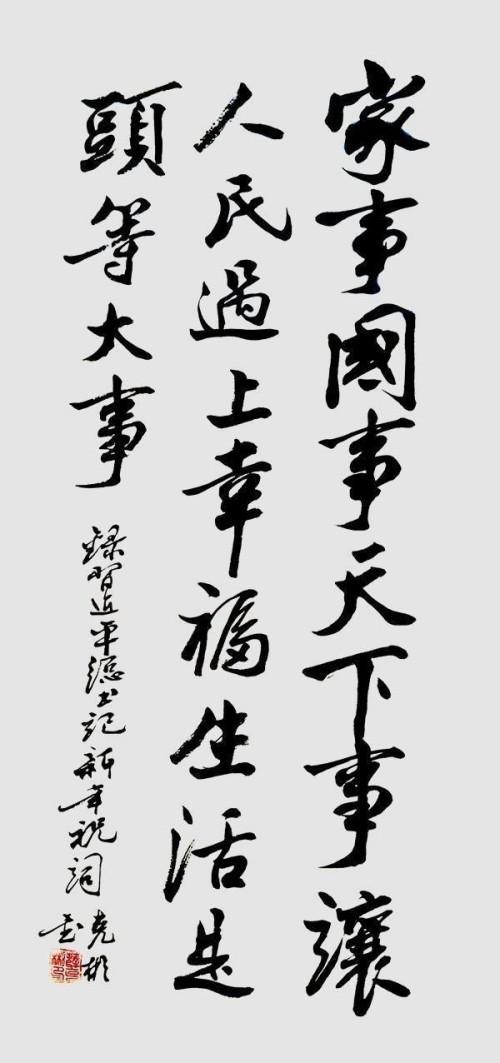 家事國事天下事讓
人民過上幸福生活是
頭等大事
錄習近平總書記新年祝詞
克彬書